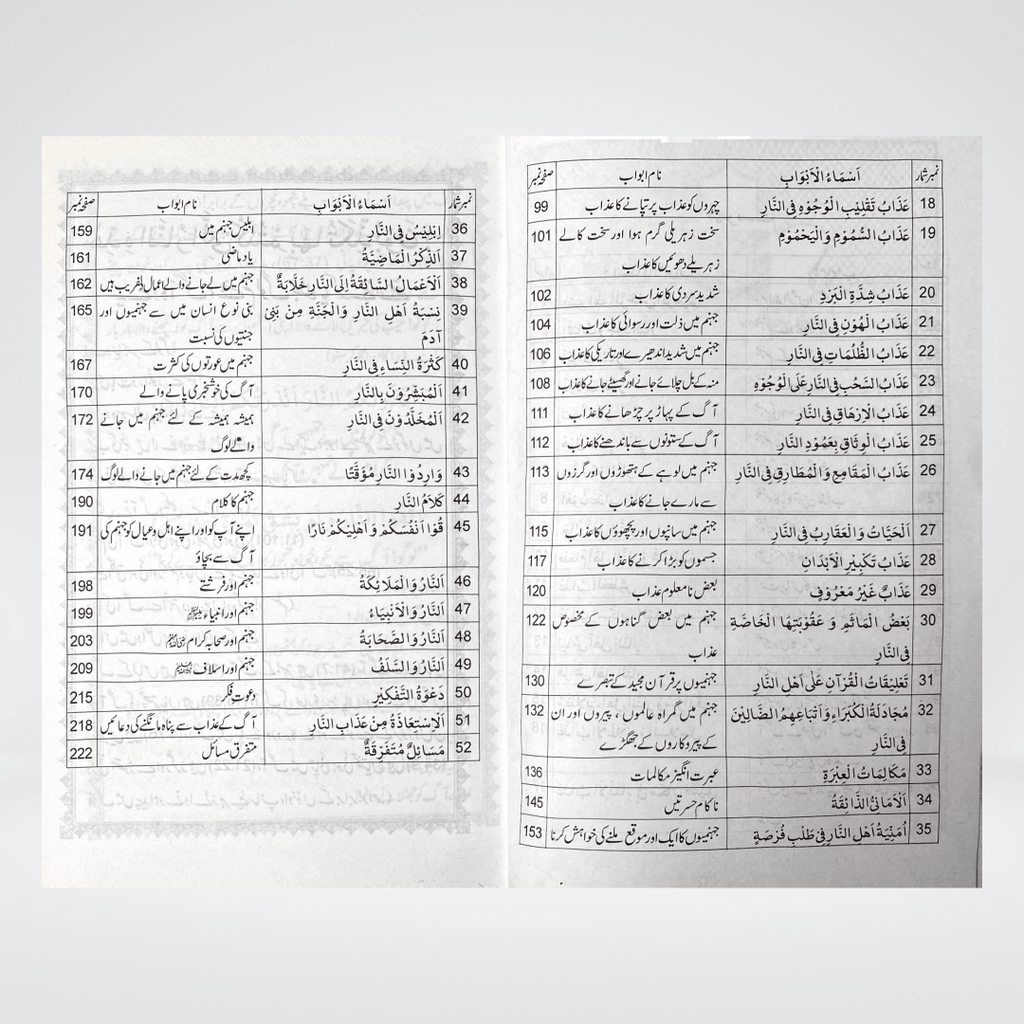 نمبر شمار اَسْمَاءُ الْاَبْوَابِ نام ابواب صفحہ نمبر
18 عَذَابُ تَقْلِيْبِ الْوُجُوْهِ فِی النَّارِ چہروں کو عذاب پر تپانے کا عذاب 99
19 عَذَابُ السُّمُوْمِ وَ الْيَحْمُوْمِ سخت زہریلی گرم ہوا اور سخت کالے 101
زہریلے دھوئیں کا عذاب
20 عَذَابُ شِدَّةِ الْبَرْدِ شدید سردی کا عذاب 102
21 عَذَابُ الْهُوْنِ فِی النَّارِ جہنم میں ذلت اور رسوائی کا عذاب 104
22 عَذَابُ الظُّلُمَاتِ فِی النَّارِ جہنم میں شدید اندھیرے اور تاریکی کا عذاب 106
23 عَذَابُ السَّحْبِ فِی النَّارِ عَلَی الْوُجُوْهِ منہ کے بل چلائے جانے اور گھسیٹے جانے کا عذاب 108
24 عَذَابُ الْاِرْهَاقِ فِی النَّارِ آگ کے پہاڑ پر چڑھانے کا عذاب 111
25 عَذَابُ الْوِثَاقِ بِعَمُوْدِ النَّارِ آگ کے ستونوں سے باندھنے کا عذاب 112
26 عَذَابُ الْمَقَامِعِ وَ الْمُطَارِقِ فِی النَّارِ جہنم میں لوہے کے ہتھوڑوں اور گرزوں 113
سے مارے جانے کا عذاب
27 اَلْحَيَّاتُ وَ الْعَقَارِبُ فِی النَّارِ جہنم میں سانپوں اور بچھوؤں کا عذاب 115
28 عَذَابُ تَكْبِيْرِ الْاَبْدَانِ جسموں کو بڑا کرنے کا عذاب 117
29 عَذَابٌ غَيْرُ مَعْرُوْفٍ بعض نامعلوم عذاب 120
30 بَعْضُ الْمَاٰثِمِ وَ عَقُوْبَتِهَا الْخَاصَّةِ جہنم میں بعض گناہوں کے مخصوص 122
فِی النَّارِ عذاب
31 تَعْلِيْقَاتُ الْقُرْآنِ عَلٰی اَهْلِ النَّارِ جہنمیوں پر قرآن مجید کے تبصرے 130
32 مُجَادَلَةُ الْكُبَرَاءِ وَ اَتْبَاعِهِمُ الضَّالِّيْنَ جہنم میں گمراہ عالموں ، پیروں اور ان 132
فِی النَّارِ کے پیروکاروں کے جھگڑے
33 مَكَالِمَاتُ الْعِبْرَةِ عبرت انگیز مکالمات 136
34 اَلْاَمَانِیُّ الذَّائِقَةُ ناکام حسرتیں 145
35 اُمْنِيَّةُ اَهْلِ النَّارِ فِیْ طَلْبِ فُرْصَةٍ جہنمیوں کا ایک اور موقع ملنے کی خواہش کرنا 153
نمبر شمار اَسْمَاءُ الْاَبْوَابِ نام ابواب صفحہ نمبر
36 اِبْلِيْسُ فِی النَّارِ ابلیس جہنم میں 159
37 اَلذِّكْرُ الْمَاضِيَّةُ یاد ماضی 161
38 اَلْاَعْمَالُ السَّائِقَةُ اِلَی النَّارِ خَلَّابَةٌ جہنم میں لے جانے والے اعمال دلفریب ہیں 162
39 نِسْبَةُ اَهْلِ النَّارِ وَ الْجَنَّةِ مِنْ بَنِیْ بنی نوع انسان میں سے جہنمیوں اور 165
آدَمَ جنتیوں کی نسبت
40 كَثْرَةُ النِّسَاءِ فِی النَّارِ جہنم میں عورتوں کی کثرت 167
41 اَلْمُبَشَّرُوْنَ بِالنَّارِ آگ کی خوشخبری پانے والے 170
42 اَلْمُخَلَّدُوْنَ فِی النَّارِ ہمیشہ ہمیشہ کے لئے جہنم میں جانے 172
والے لوگ
43 وَارِدُوْا النَّارِ مُؤَقَّتًا کچھ مدت کے لئے جہنم میں جانے والے لوگ 174
44 كَلَامُ النَّارِ جہنم کا کلام 190
45 قُوْا اَنْفُسَكُمْ وَ اَهْلِيْكُمْ نَارًا اپنے آپ کو اور اپنے اہل و عیال کو جہنم کی 191
آگ سے بچاؤ
46 اَلنَّارُ وَ الْمَلَائِكَةُ جہنم اور فرشتے 198
47 اَلنَّارُ وَ الْاَنْبِيَاءُ جہنم اور انبیاء 199
48 اَلنَّارُ وَ الصَّحَابَةُ جہنم اور صحابہ کرام 203
49 اَلنَّارُ وَ السَّلَفُ جہنم اور اسلاف 209
50 دَعْوَةُ التَّفْكِيْرِ دعوت فکر 215
51 اَلْاِسْتِعَاذَةُ مِنْ عَذَابِ النَّارِ آگ کے عذاب سے پناہ مانگنے کی دعائیں 218
52 مَسَائِلٌ مُتَفَرِّقَةٌ متفرق مسائل 222